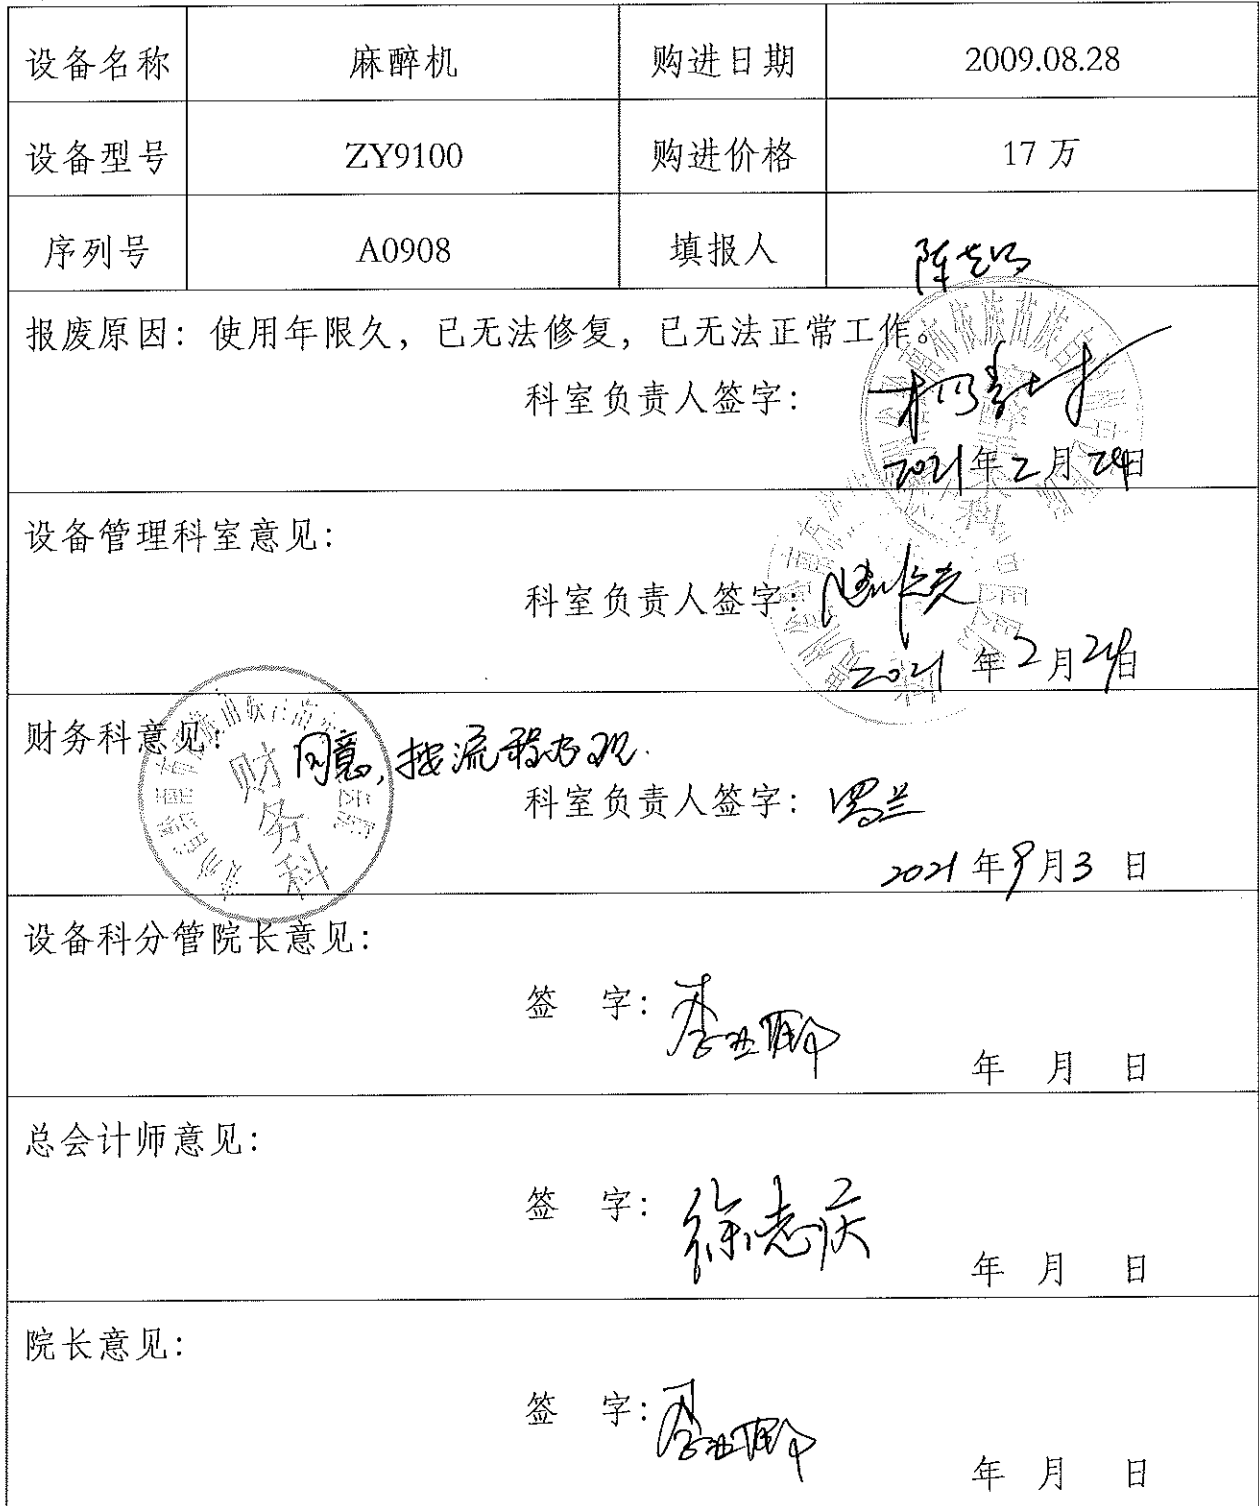 设备名称 麻醉机 购进日期 2009.08.28
设备型号 ZY9100 购进价格 17 万
序列号 A0908 填报人
报废原因：使用年限久，已无法修复，已无法正常工作。
科室负责人签字：
2021年2月24日
设备管理科室意见：
科室负责人签字：
2021 年2月24日
财务科意见：同意，按流程办理.
财务科
科室负责人签字：罗兰
2021年9月3 日
设备科分管院长意见：
签 字：
年 月 日
总会计师意见：
签 字：徐志庆
年 月 日
院长意见：
签 字：
年 月 日